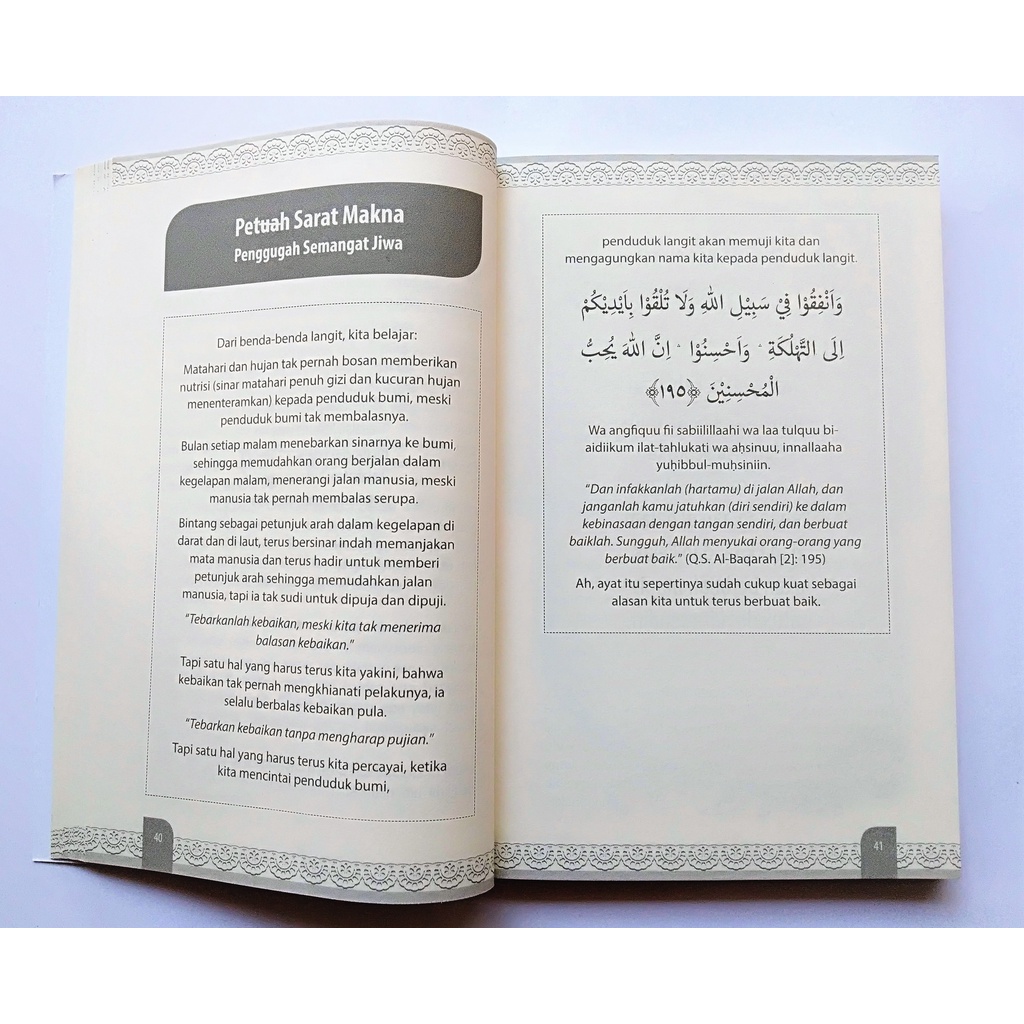 Petuah Sarat Makna
Penggugah Semangat Jiwa
Dari benda-benda langit, kita belajar:
Matahari dan hujan tak pernah bosan memberikan
nutrisi (sinar matahari penuh gizi dan kucuran hujan
menenteramkan) kepada penduduk bumi, meski
penduduk bumi tak membalasnya.
Bulan setiap malam menebarkan sinarnya ke bumi,
sehingga memudahkan orang berjalan dalam
kegelapan malam, menerangi jalan manusia, meski
manusia tak pernah membalas serupa.
Bintang sebagai petunjuk arah dalam kegelapan di
darat dan di laut, terus bersinar indah memanjakan
mata manusia dan terus hadir untuk memberi
petunjuk arah sehingga memudahkan jalan
manusia, tapi ia tak sudi untuk dipuja dan dipuji.
“Tebarkanlah kebaikan, meski kita tak menerima
balasan kebaikan.”
Tapi satu hal yang harus terus kita yakini, bahwa
kebaikan tak pernah mengkhianati pelakunya, ia
selalu berbalas kebaikan pula.
“Tebarkan kebaikan tanpa mengharap pujian.”
Tapi satu hal yang harus terus kita percayai, ketika
kita mencintai penduduk bumi,
40
penduduk langit akan memuji kita dan
mengagungkan nama kita kepada penduduk langit.
وَاَنْفِقُوْا فِيْ سَبِيْلِ اللّٰهِ وَلَا تُلْقُوْا بِاَيْدِيْكُمْ
اِلَى التَّهْلُكَةِ ۛ وَاَحْسِنُوْا ۛ اِنَّ اللّٰهَ يُحِبُّ
الْمُحْسِنِيْنَ ﴿١٩٥﴾
Wa angfiquu fii sabiilillaahi wa laa tulquu bi-
aidiikum ilat-tahlukati wa aḥsinuu, innallaaha
yuḥibbul-muḥsiniin.
“Dan infakkanlah (hartamu) di jalan Allah, dan
janganlah kamu jatuhkan (diri sendiri) ke dalam
kebinasaan dengan tangan sendiri, dan berbuat
baiklah. Sungguh, Allah menyukai orang-orang yang
berbuat baik.” (Q.S. Al-Baqarah [2]: 195)
Ah, ayat itu sepertinya sudah cukup kuat sebagai
alasan kita untuk terus berbuat baik.
41